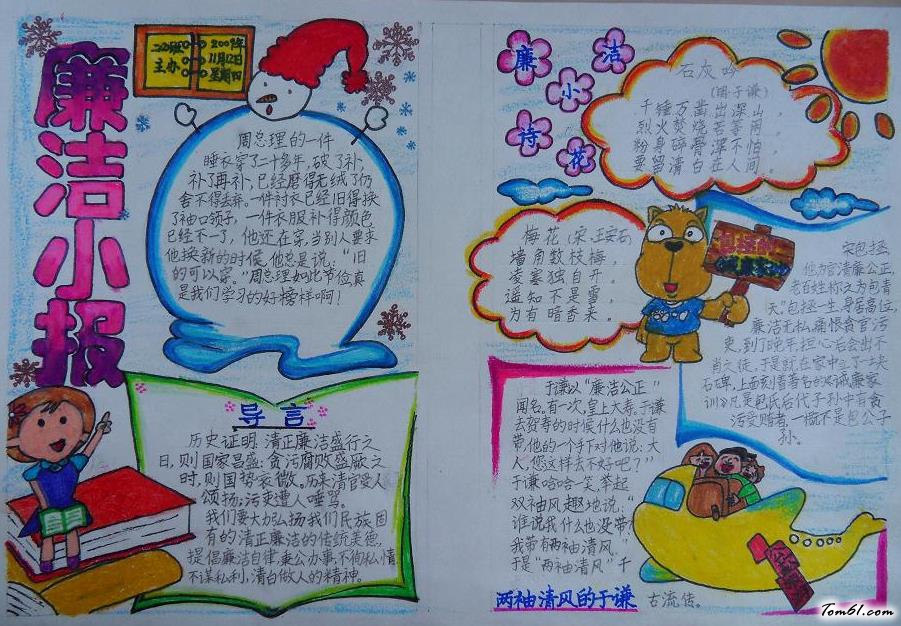 廉洁小报
202班
主办
2009年
11月12日
星期四
周总理的一件
睡衣穿了二十多年,破了补,
补了再补,已经磨得无绒了仍
舍不得丢弃。一件衬衣已经旧得换
了袖口领子,一件衣服补得颜色
已经不一了,他还在穿,当别人要求
他换新的时候,他总是说:“旧
的可以穿。”周总理如此节俭真
是我们学习的好榜样啊!
导言
历史证明,清正廉洁盛行之
日,则国家昌盛;贪污腐败盛厥之
时,则国势衰微。历来清官受人
颂扬;污吏遭人唾骂。
我们要大力弘扬我们民族固
有的清正廉洁的传统美德,
提倡廉洁自律,秉公办事,不徇私情
不谋私利,清白做人的精神。
廉洁小诗花
石灰吟
(明于谦)
千锤万凿出深山,
烈火焚烧若等闲,
粉身碎骨浑不怕,
要留清白在人间。
梅花(宋 王安石)
墙角数枝梅,
凌寒独自开。
遥知不是雪,
为有暗香来。
宋包拯,
他为官清廉公正,
老百姓称之为包青
天。包拯一生身居高位,
廉洁无私,痛恨贪官污
吏,到了晚年,担心后会出不
肖之徒,于是就在家中立了一块
石碑,上面刻着著名的《诫廉家
训》凡是包氏后代子孙中有贪
污受贿者,一概不是包公子
孙。
于谦以“廉洁公正”
闻名。有一次,皇上大寿。于谦
去贺寿的时候什么也没有
带,他的一个手下对他说:大
人,您这样去不好吧?”
于谦哈哈一笑,举起
双袖风趣地说:“
谁说我什么也没带?
我带有两袖清风。”
于是“两袖清风”千
古流传。
两袖清风的于谦
Tom61.com